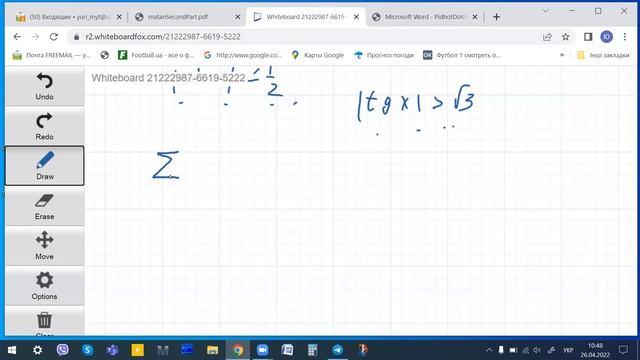 (50) Входящие • yuri_myt@u
matanSecondPart.pdf
Whiteboard 21222987-6619-5222
Microsoft Word - PidhotDoKR
r2.whiteboardfox.com/21222987-6619-5222
Почта FREEMAIL —
Football.ua - все о ф...
http://www.google.c...
Карты Google
Прогноз погоди
Футбол 1 смотреть о...
Інші закладки
Whiteboard 21222987-6619-5222
= 1/2
|tg x| > √3
Σ
Undo
Redo
Draw
Erase
Move
Options
Clear
УКР
10:48
26.04.2022